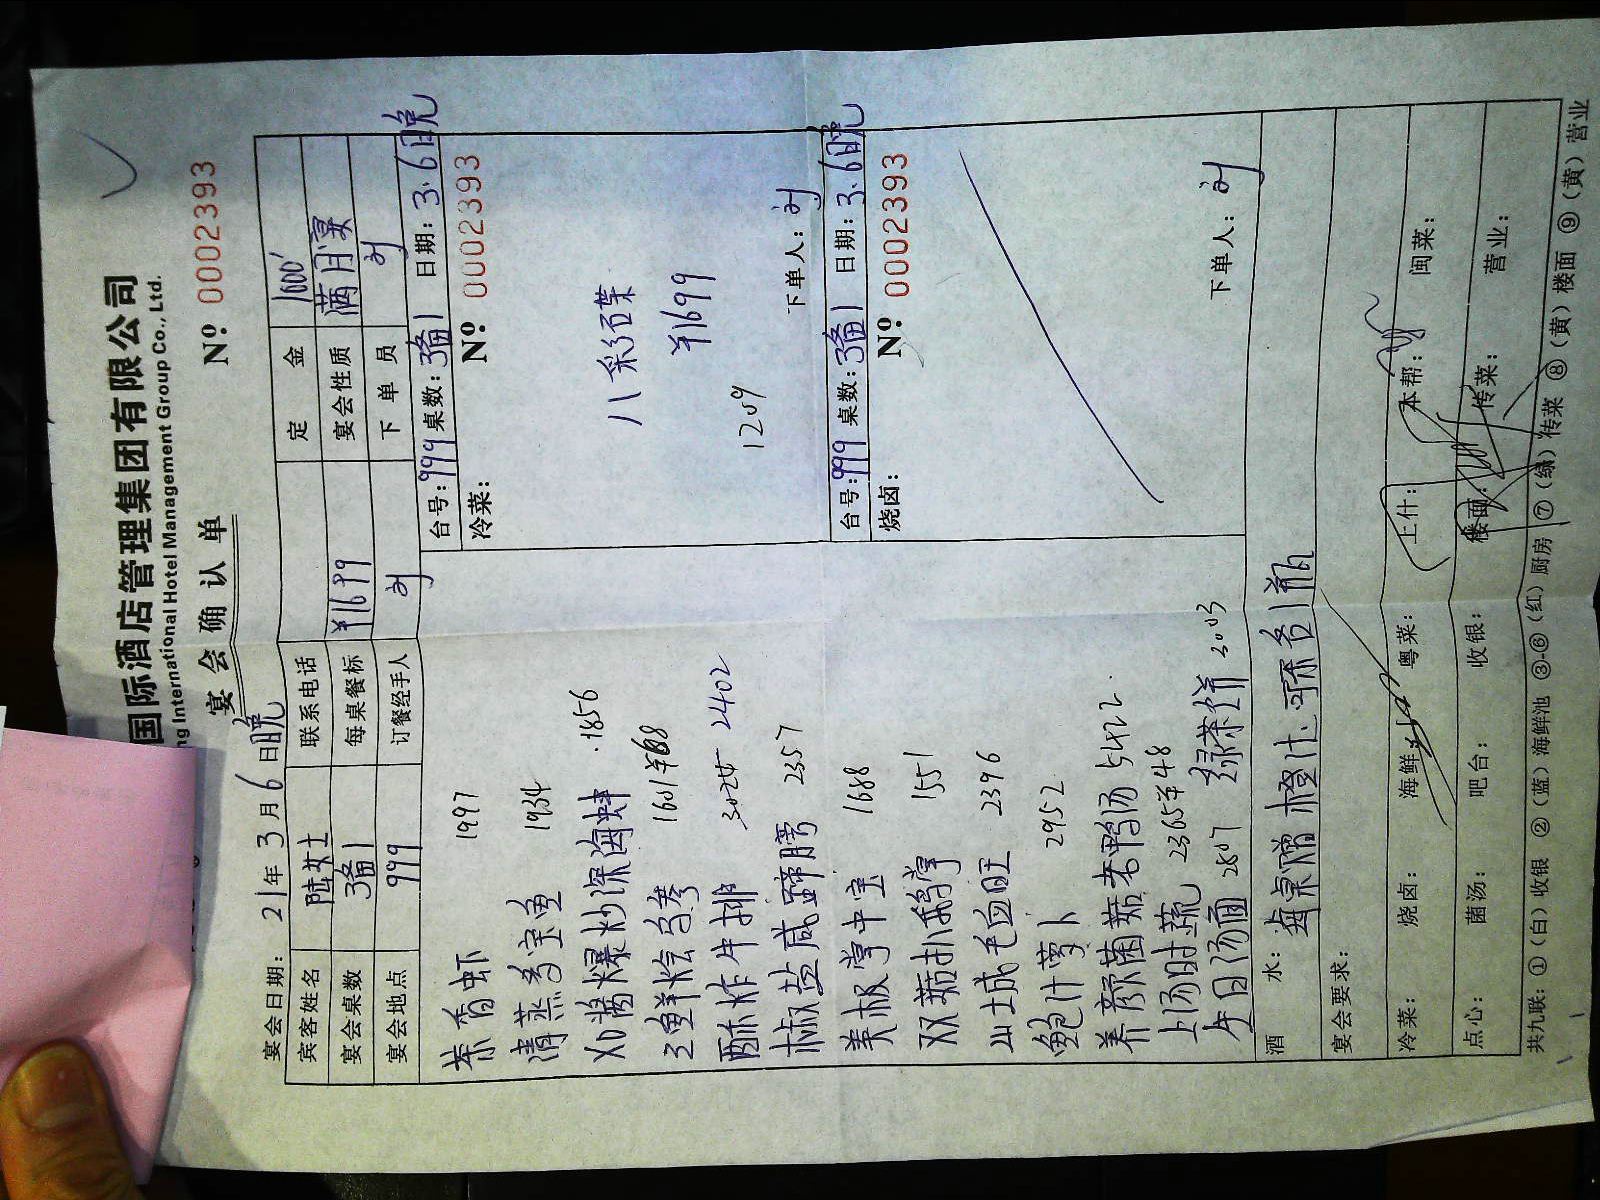 国际酒店管理集团有限公司
ng International Hotel Management Group Co., Ltd.
宴会确认单
Nº: 0002393
宴会日期: 21年3月6日晚
宾客姓名 陆女士 联系电话 定金 1000
宴会桌数 3备1 每桌餐标 ¥1699 宴会性质 满月宴
宴会地点 999 订餐经手人 刘 下单员 刘
台号: 999 桌数: 3备1 日期: 3.6日晚
冷菜: Nº: 0002393
八彩石碟
¥1699
1209
下单人: 刘
台号: 999 桌数: 3备1 日期: 3.6晚
烧卤: Nº: 0002393
下单人: 刘
茶香虾 1997
清蒸多宝鱼 1934
XO酱爆炒深海蚌 1856
三鲜烩乌参 1601
酥炸牛排 2402
椒盐咸蹄膀 2357
美极掌中宝 1688
双菇扒鹅掌 1551
山城毛血旺 2396
鲍汁萝卜 2952
养颜菌菇老鸭汤 5422
上汤时蔬 2365半48
生日汤面 2807 绿茶饼 3003
酒水: 每桌赠橙汁、可乐各1瓶
宴会要求:
冷菜: 烧卤: 海鲜: 粤菜: 上什: 本帮: 闽菜:
点心: 菌汤: 吧台: 收银: 楼面: 传菜: 营业:
共九联: ①(白)收银 ②(蓝)海鲜池 ③-⑥(红)厨房 ⑦(绿)传菜 ⑧(黄)楼面 ⑨(黄)营业